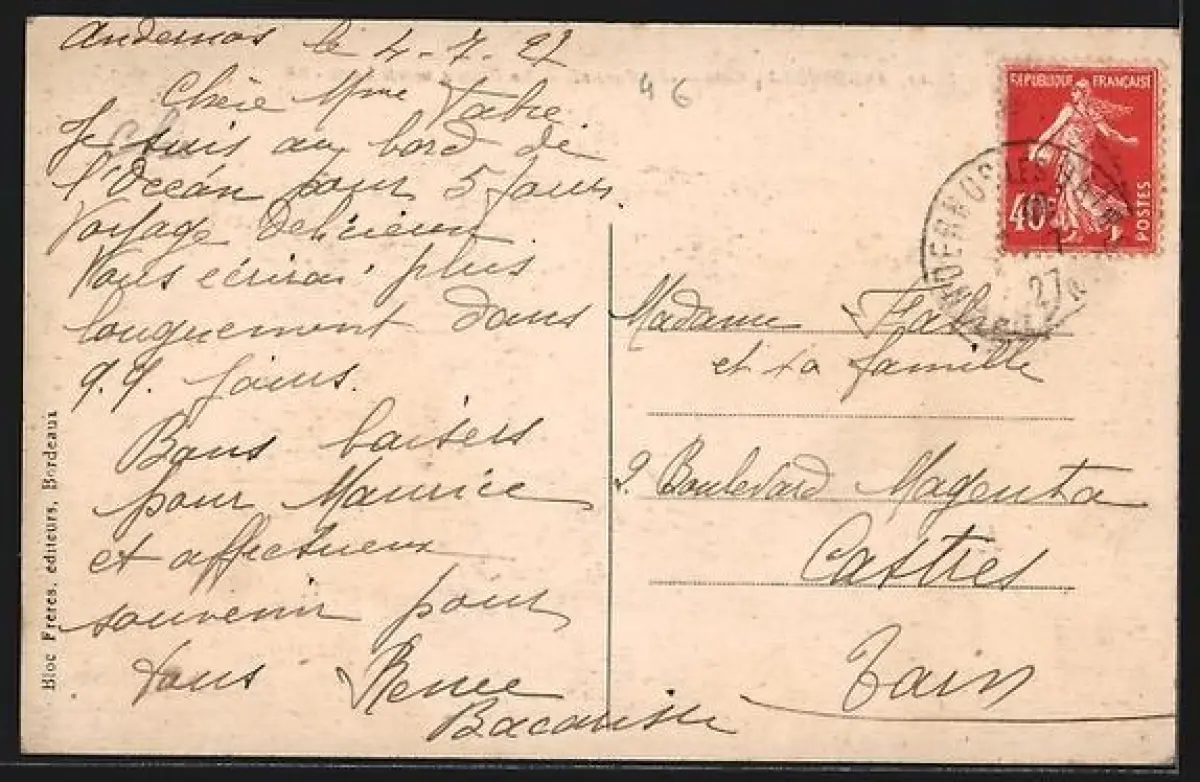 Andernos le 4-7.27
Chère Mme Fabre
Je suis au bord de
l'Océan pour 5 jours.
Voyage délicieux
Vous écrirai plus
longuement dans
q.q. jours.
Bons baisers
pour Maurice
et affectueux
souvenir pour
tous Renée
46
RÉPUBLIQUE FRANÇAISE
40c
POSTES
ANDERNOS-LES-BAINS
27
Madame Fabre
et sa famille
2. Boulevard Magenta
Castres
Tarn
Bloc Frères, éditeurs, Bordeaux